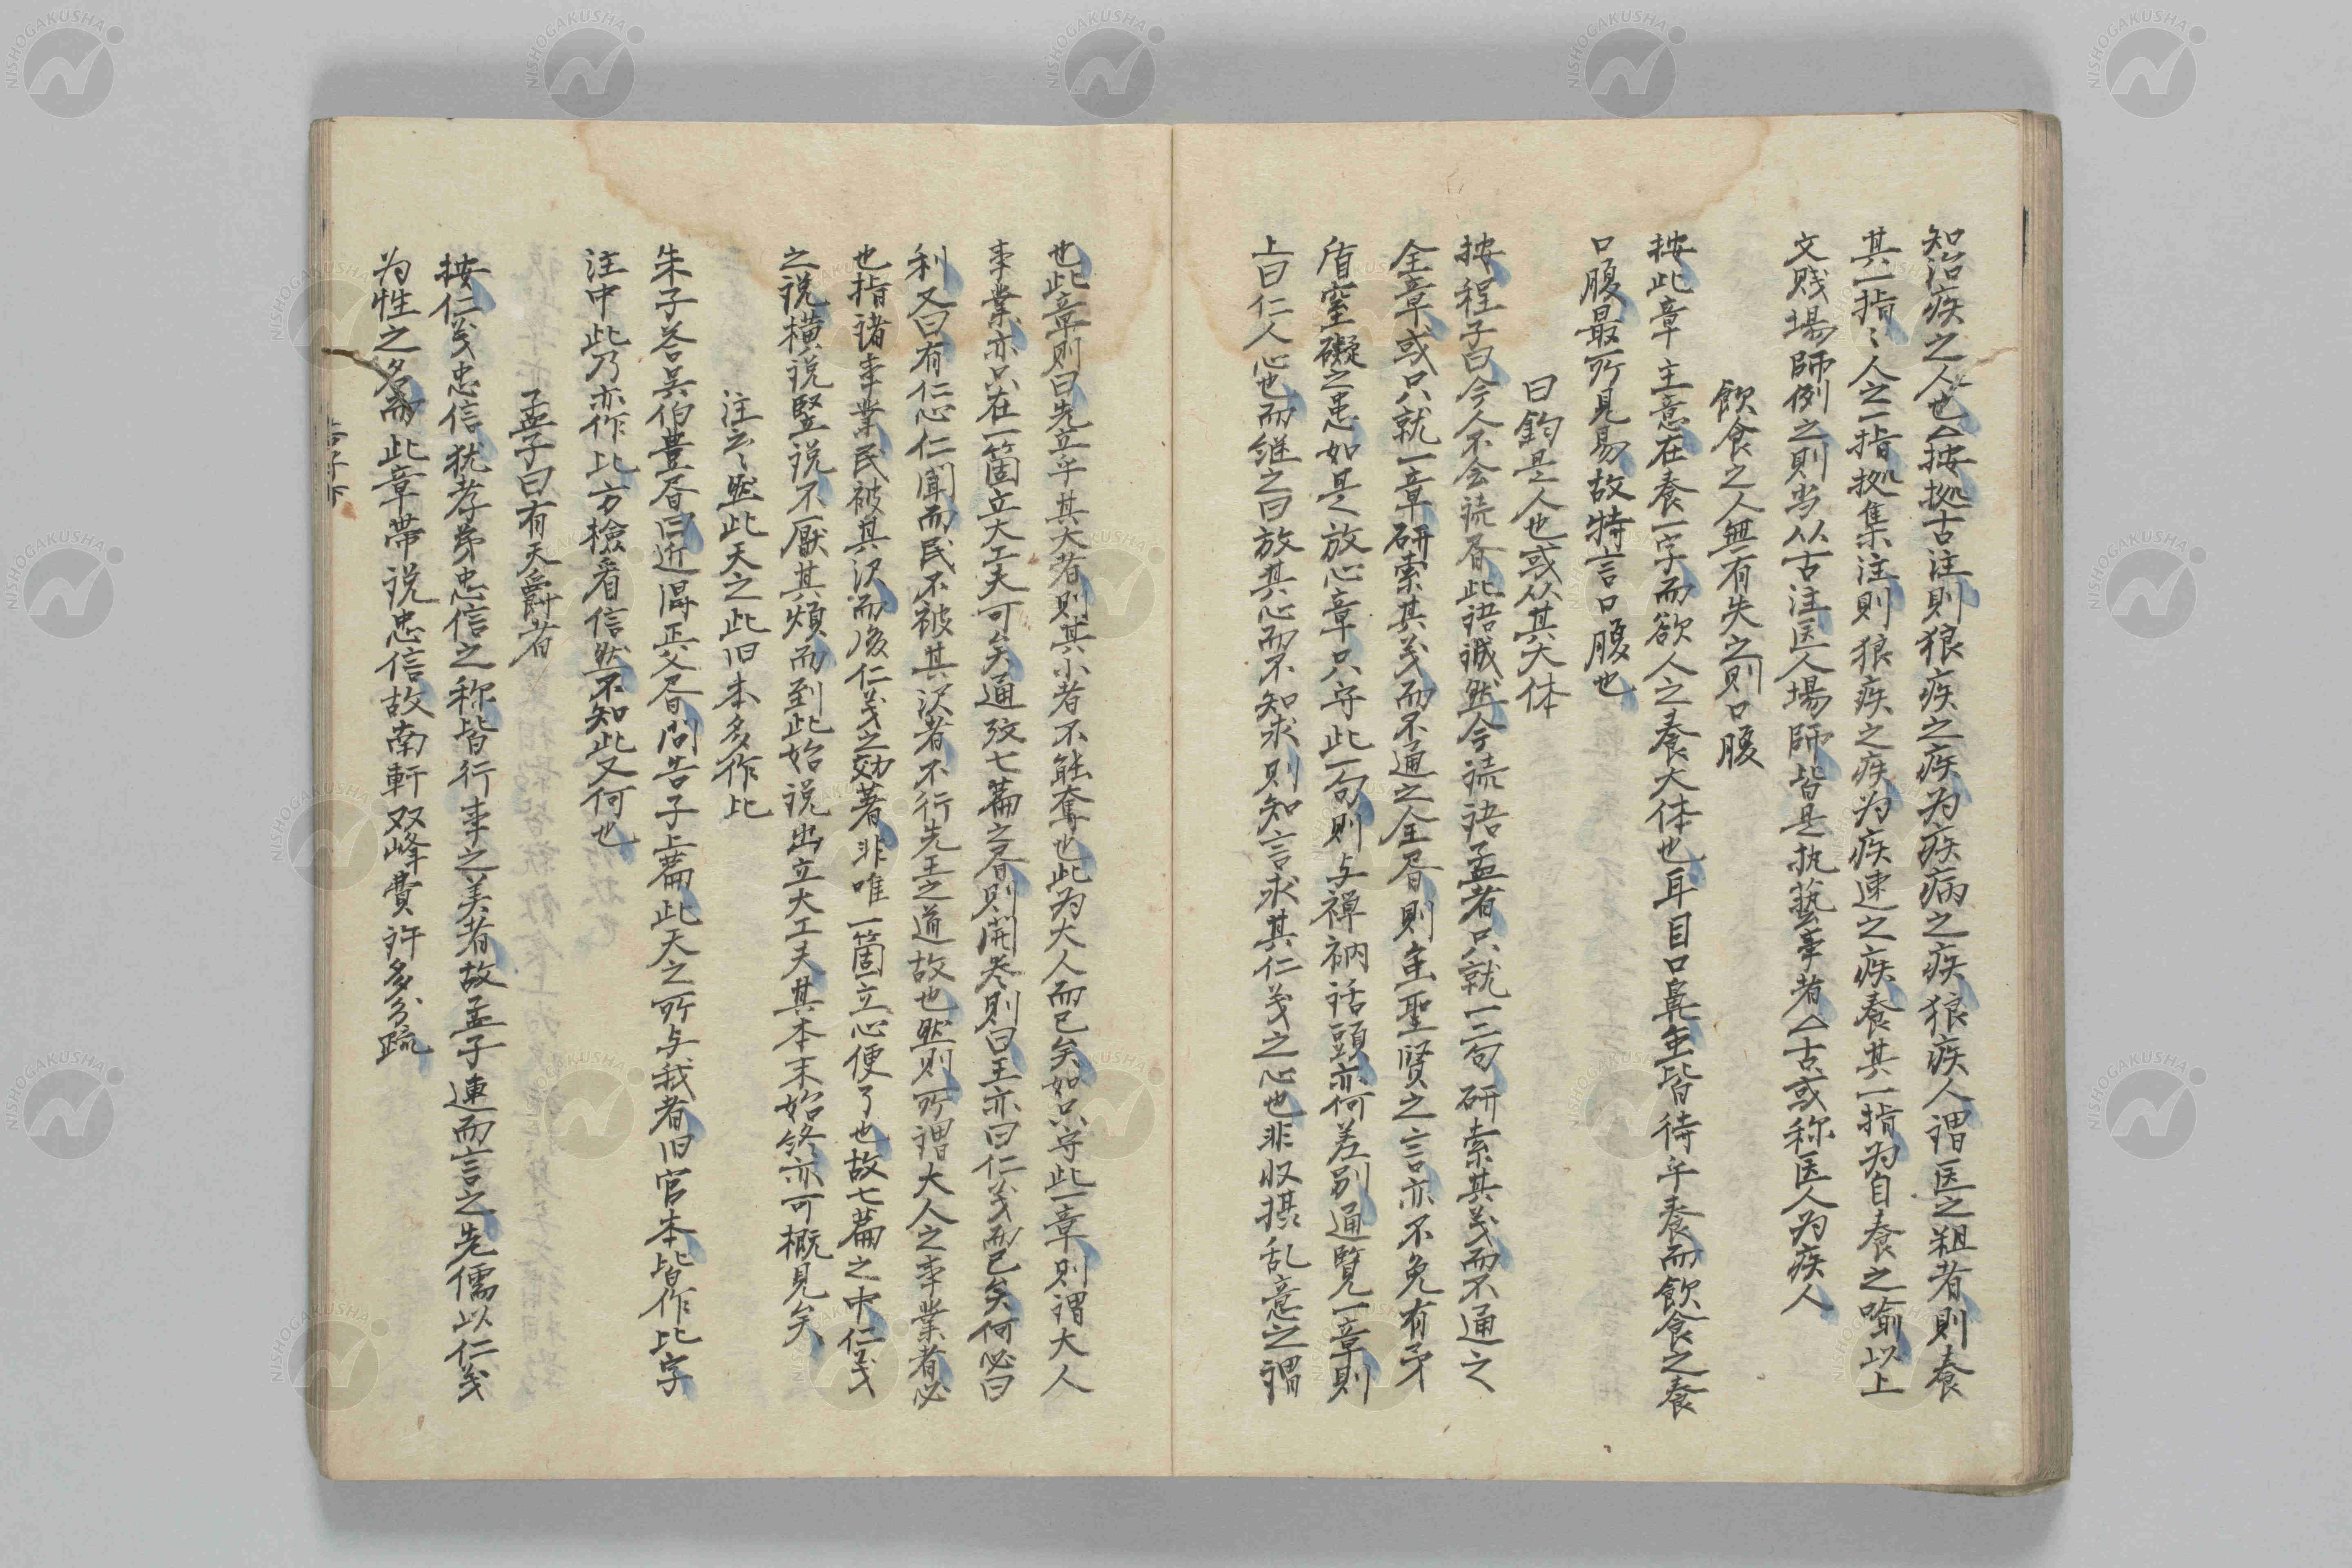 知治疾之人也△按拠古注則狼疾之疾为疾病之疾狼疾人謂医之粗者則養
其一指〻人之一指拠集注則狼疾之疾为疾速之疾養其一指为自養之喻以上
文賎場師例之則当从古注医人場師皆是执藝事者△古或称医人为疾人
飲食之人無有失之則口腹
按此章主意在養一字而欲人之養大体也耳目口鼻虽皆待乎養而飲食之養
口腹最所見易故特言口腹也
曰鈞是人也或从其大体
按程子曰今人不会読昏此語誠然今読語孟者只就一二句研索其义而不通之
全章或只就一章研索其义而不通之全昏則虽聖賢之言亦不免有矛
盾窒礙之患如是放心章只守此一句則与禅衲话頭亦何差别通覧一章則
上曰仁人心也而继之曰放其心而不知求則知言求其仁义之心也非収摂乱意之謂
也此章則曰先立乎其大者則其小者不能奪也此为大人而已矣如只守此一章則謂大人
事業亦只在一箇立大工夫可矣通攷七篇之昏則開巻則曰王亦曰仁义而已矣何必曰
利又曰有仁心仁聞而民不被其沢者不行先王之道故也然則所謂大人之事業者必
也指諸事業民被其沢而後仁义之効著非唯一箇立心便了也故七篇之中仁义
之说横说竪说不厭其煩而到此始说出立大工夫其本末始終亦可概見矣
注云〻然此天之此旧本多作比
朱子答吴伯豊昏曰近得正父昏问告子上篇此天之所与我者旧官本皆作比字
注中此乃亦作比方檢看信然不知此又何也
孟子曰有天爵者
按仁义忠信犹孝弟忠信之称皆行事之美者故孟子連而言之先儒以仁义
为性之名而此章帯说忠信故南軒双峰費許多分疏
告子下